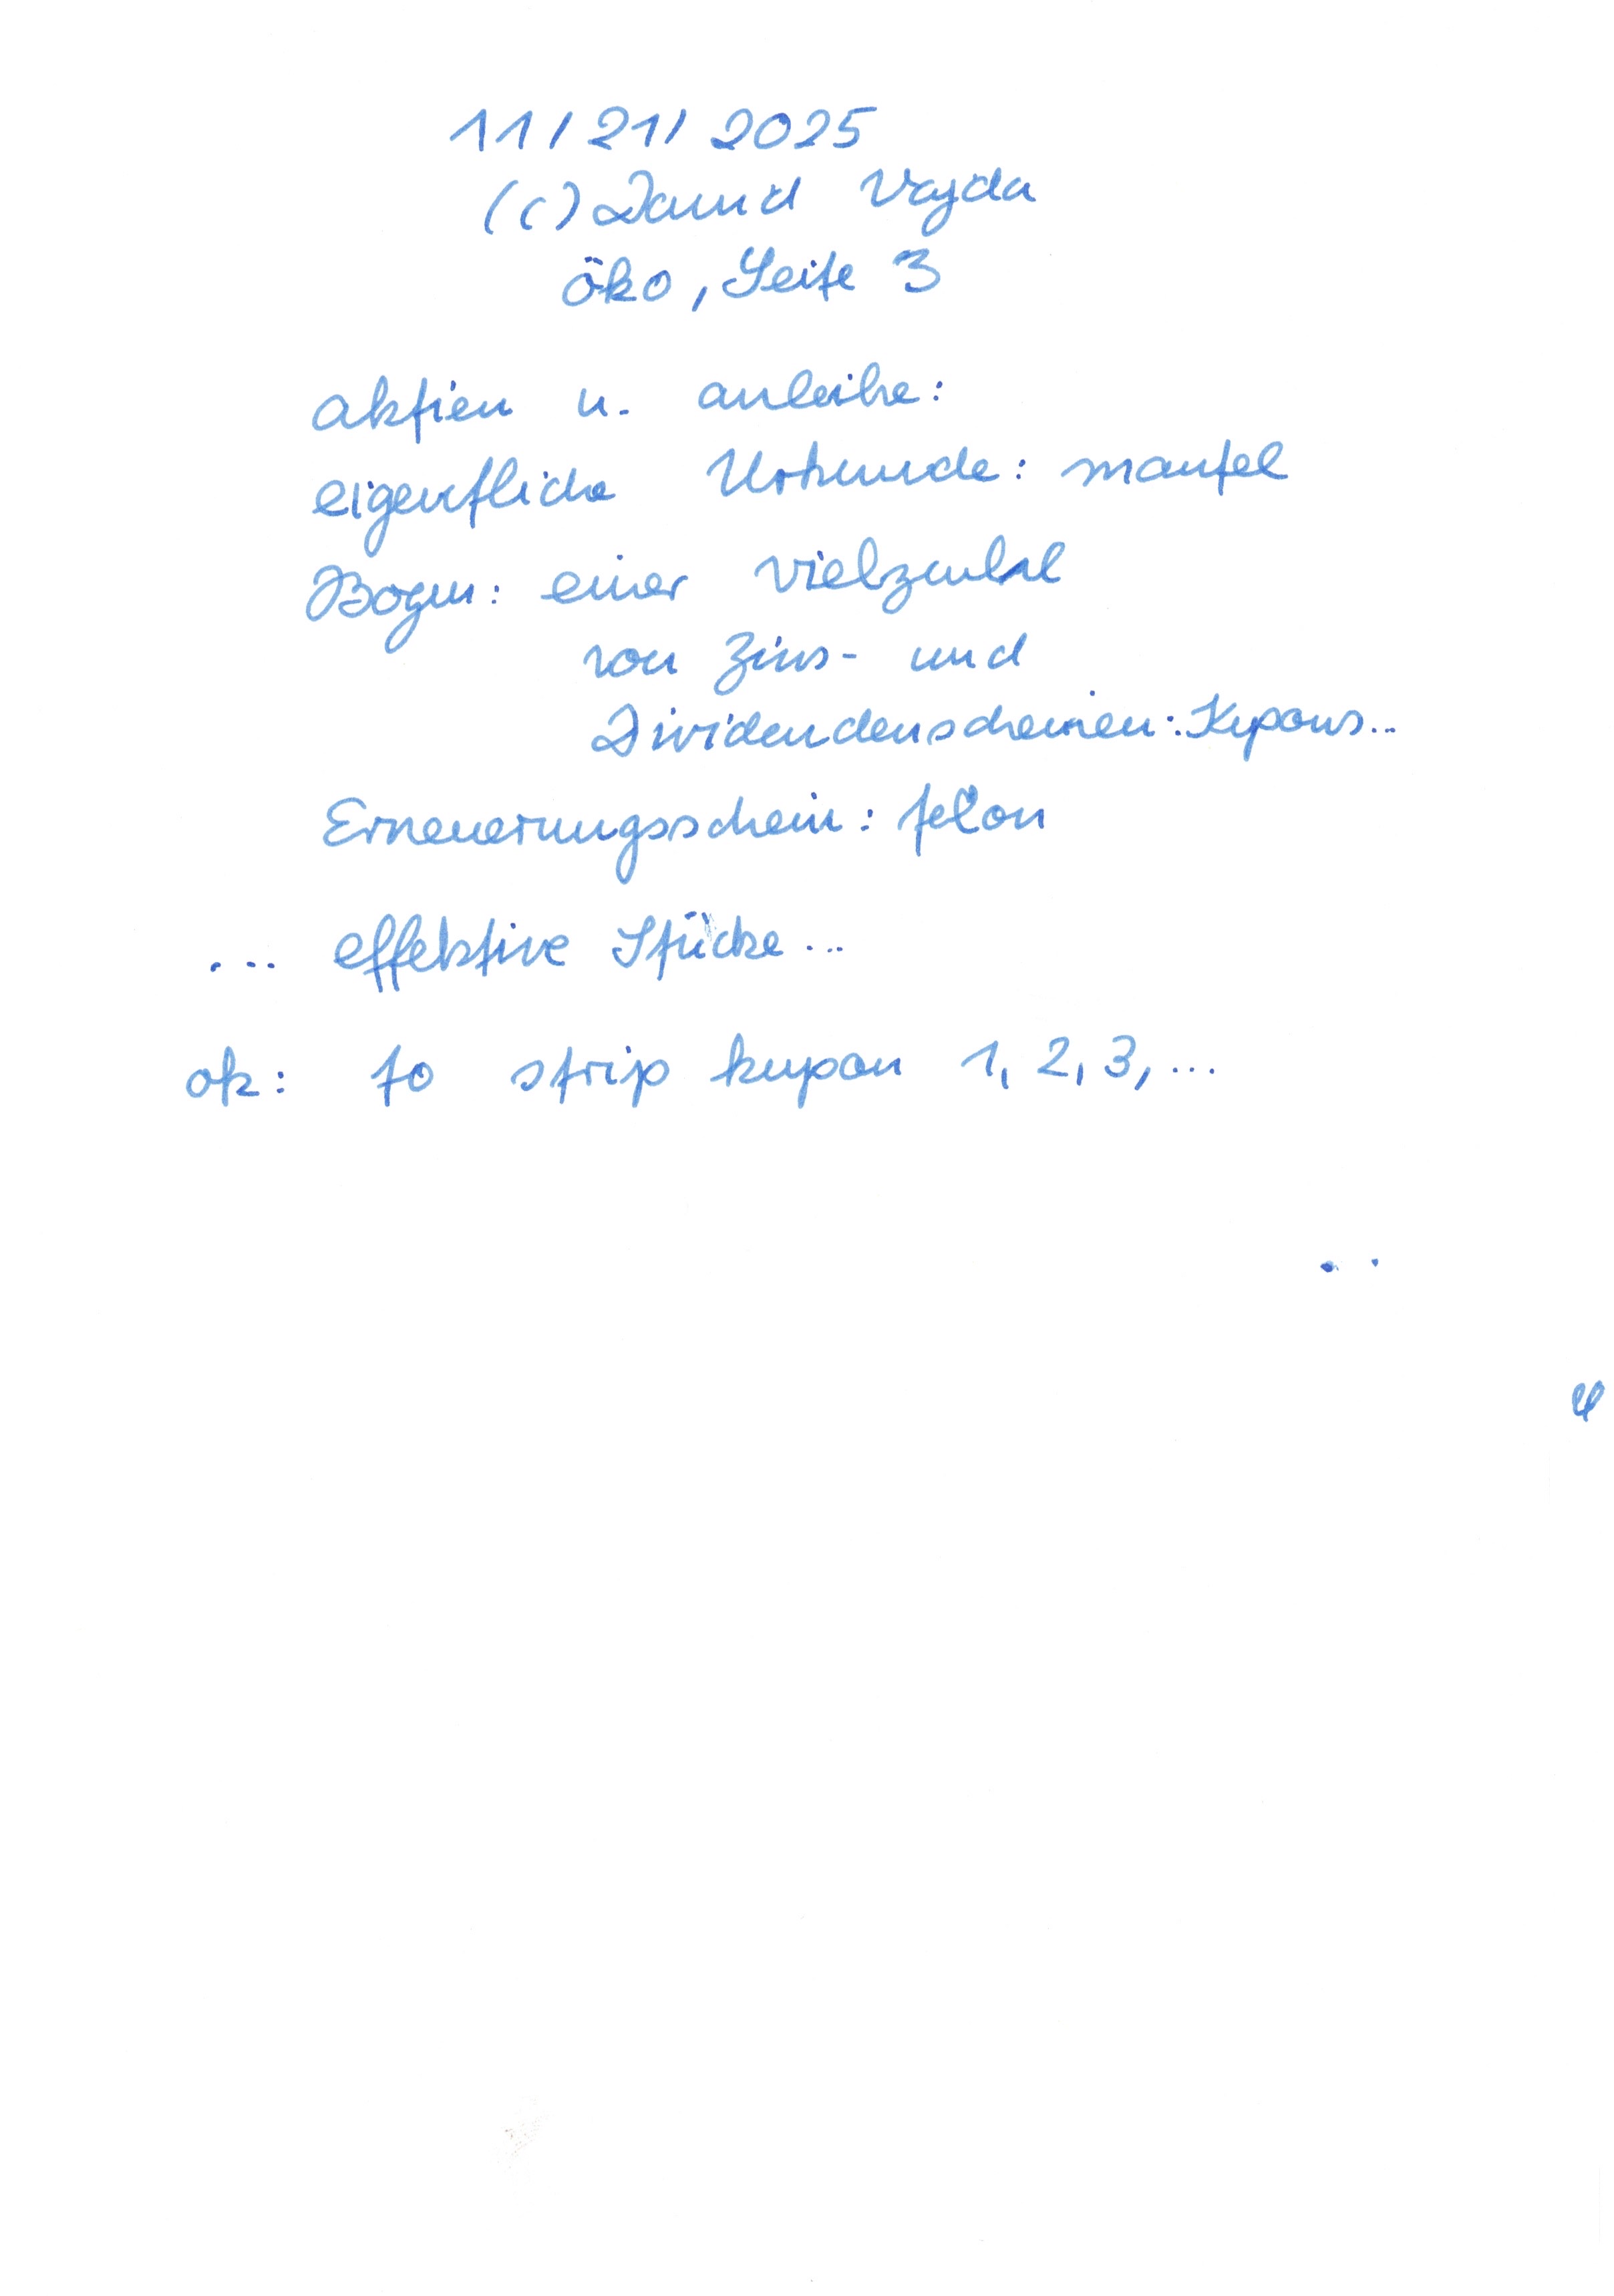 11/21/2025
(c) David Vajda
öko, Seite 3
aktien u. anleihe:
eigentliche Urkunde: mantel
Bogen: einer vielzahl
von Zins- und
Dividendenscheinen: Kupons...
Erneuerungsschein: talon
... effektive Stücke ...
ok: to strip kupon 1, 2, 3, ...
..